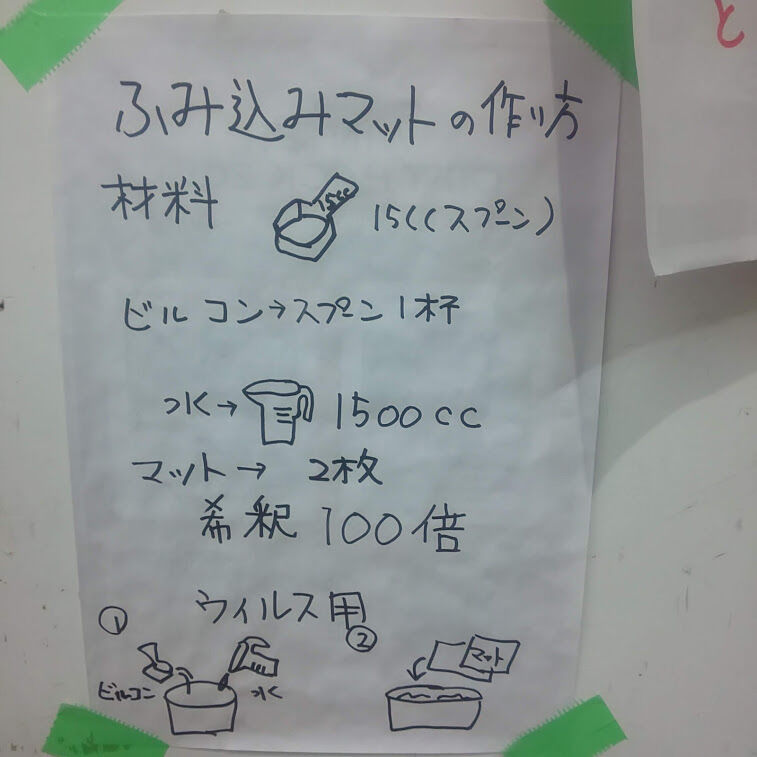 と
ふみ込みマットの作り方
材料 15cc 15ccスプーン)
ビルコン→スプーン1杯
水→ 1500cc
マット→ 2枚
希釈 100倍
ウィルス用
① ②
マット
ビルコン 水